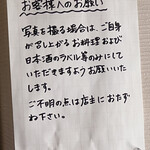 お客様へのお願い
写真を撮る場合は、ご自身
が召し上がるお料理および
日本酒のラベル等のみにして
いただきますようお願いいた
します。
ご不明の点は店主におたず
ね下さい。